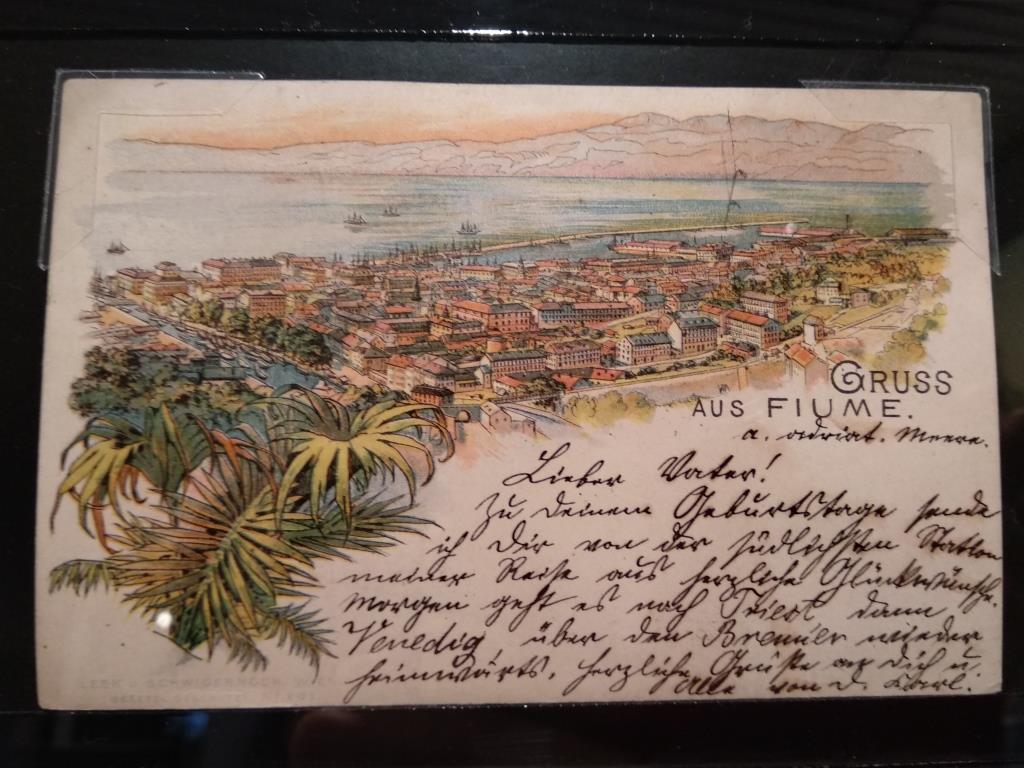 GRUSS
AUS FIUME.
a. adriat. Meere.
Lieber Vater!
Zu Deinem Geburtstage sende
ich Dir von der südlichsten Station
meiner Reise aus herzliche Glückwünsche.
Morgen geht es nach Triest dann
Venedig, über den Brenner wieder
heimwärts. Herzliche Grüße an Dich u.
Alle von D. Karl.